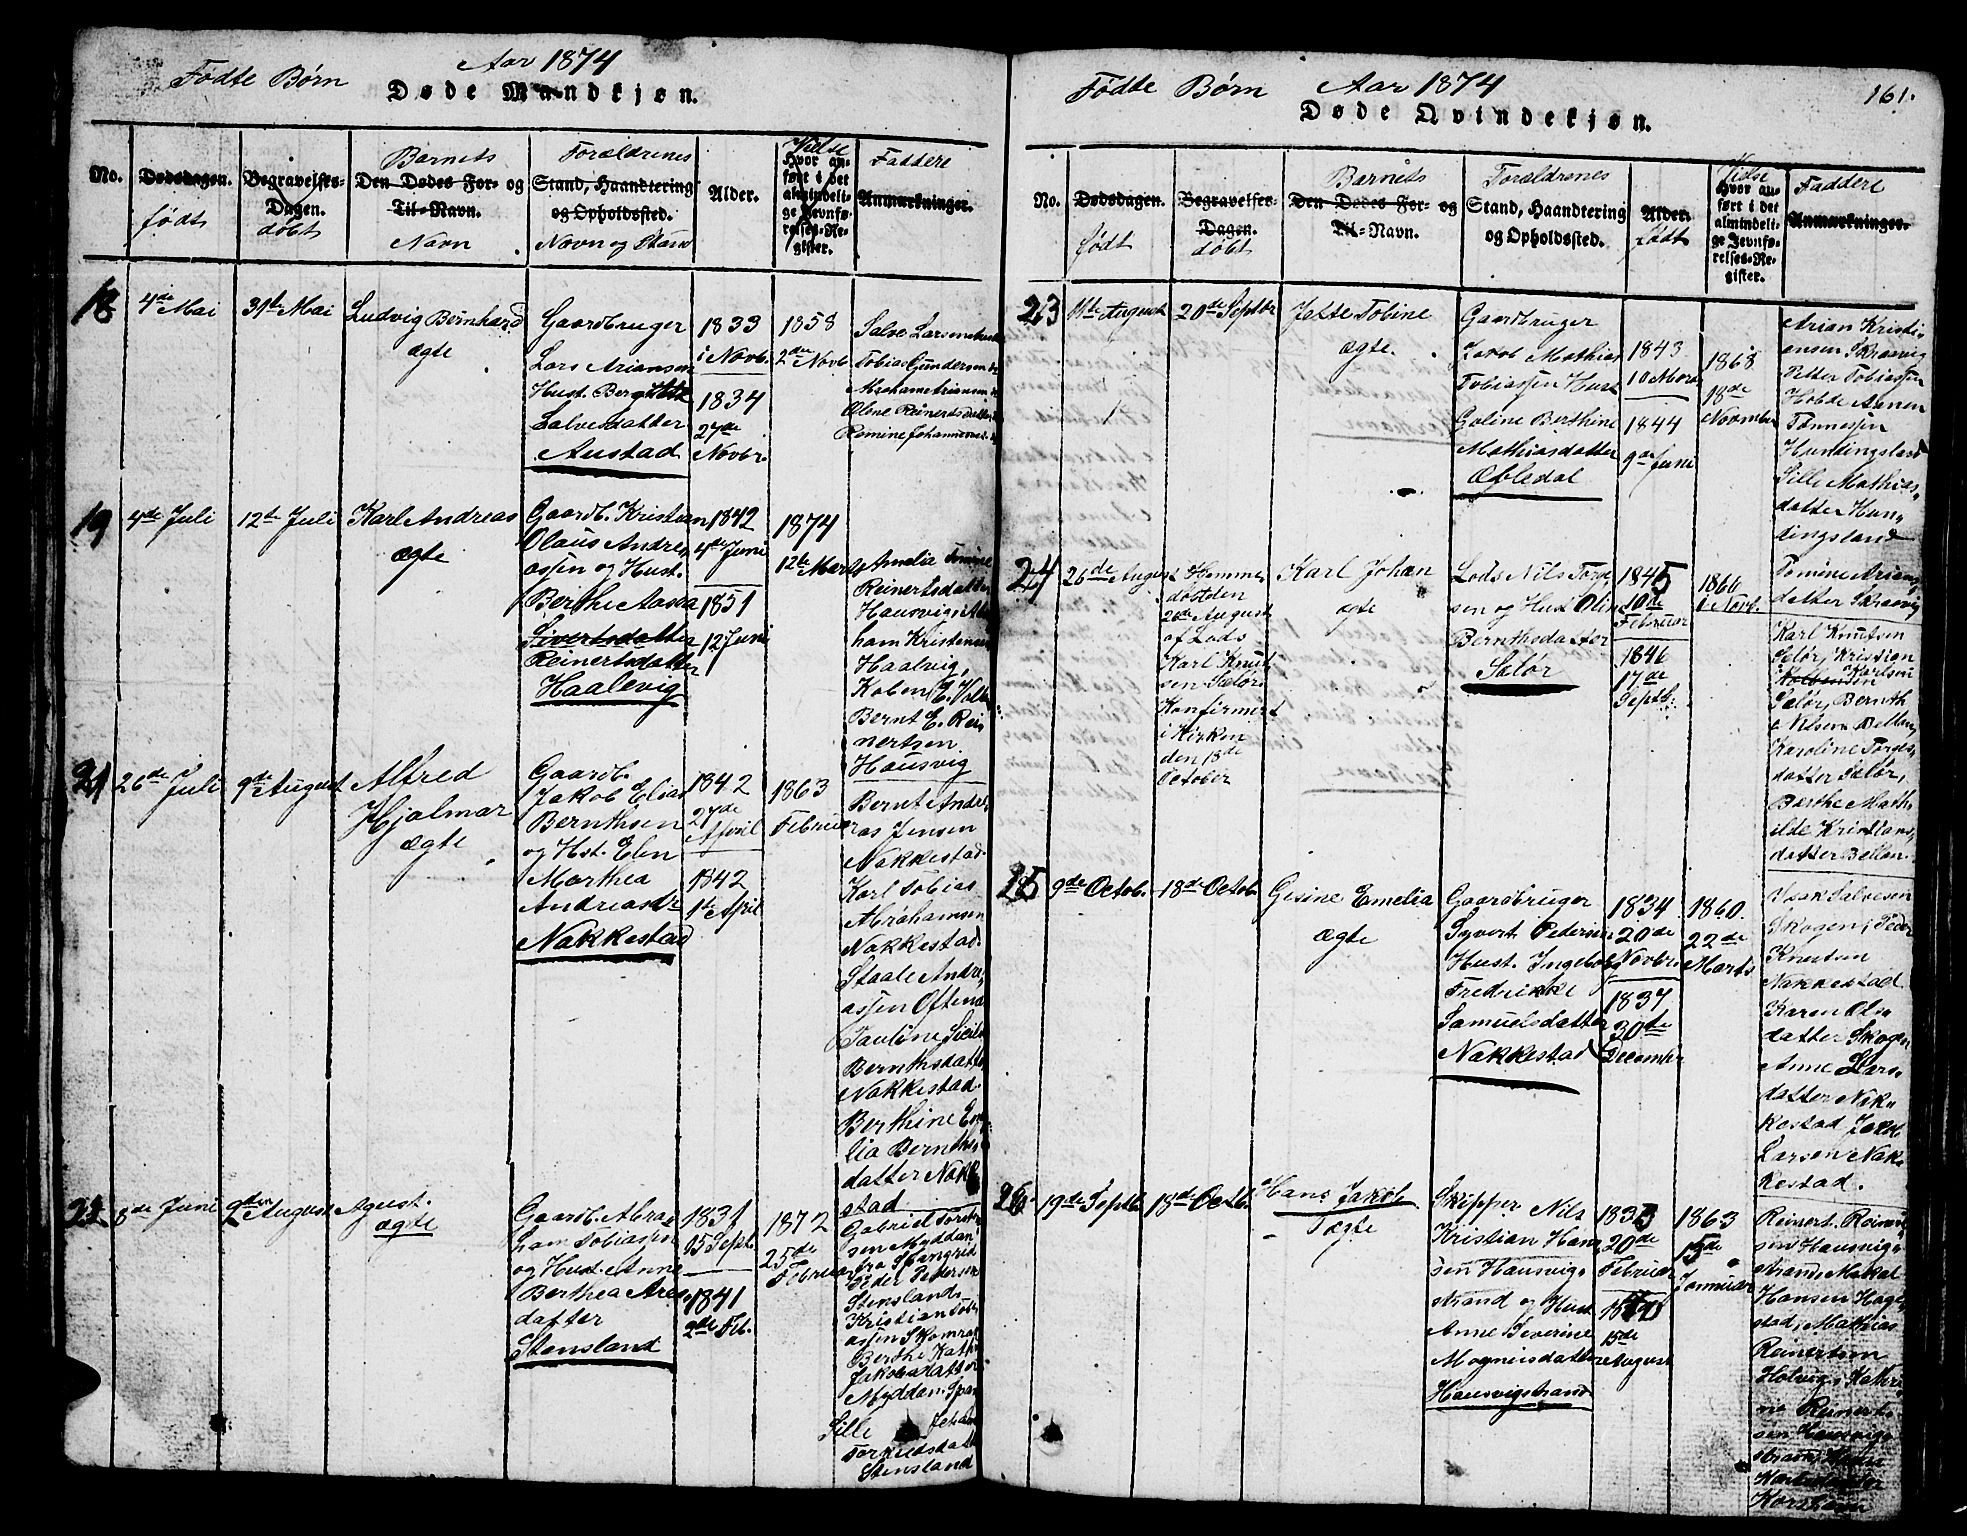 Fødte Børn
Aar 1874
Døde Mandkjøn.
No.
Dødsdagen.
født
Begravelses-
Dagen.
døbt
Barnets
Den Dødes For- og
Til-Navn.
Navn
Forældrenes
Stand, Haandtering
og Opholdssted.
Navn og Stand
Alder.
Vielse
Hvor an-
ført i det
almindeli-
ge Jevnfø-
relses-Re-
gister.
Faddere
Anmærkninger.
18
4de Mai
31te Mai
Ludvig Bernhard
ægte
Gaardbruger
Lars Ariansen
Hust. Bergitte
Salvesdatter
Austad
1833
i Novb.
1834
27de
Novbr.
1858
2den Novb
Tobias Gundersen
Olene Reinertsdatter
Romine Johannesd.
19
4de Juli
12te Juli
Karl Andreas
ægte
Gaardb. Kristian
Olaus Andre,
assen og Hust.
Berthe Aasea
Sivertsdatter
Reinertsdatter
Haalevig
1842
4de Juni
1851
12 Juni
1874
12te Marts
Amelia Tomine
Reinertsdatter
Hausvig, Abra
ham Kristensen
Haalvig,
Bernt E. Rei
nertsen
Hausvig
21
26de Juli
9de August
Alfred
Hjalmar
ægte
Gaardb.
Jakob Elias
Bernthsen
og Hst. Elen
Marthea
Andreasdr
Nakkestad
1842
27de
April
1842
1te April
1863
Februar
Bernt Andre,
as Jensen
Nakkestad
Karl Tobias
Abrahamsen
Nakkestad
Staale Andre,
assen Oftenæ
Pauline Sicil
Bernthsdatter
Nakkestad.
Berthine Eme
lia Bernths,
datter Nakke
stad
22
8de Juni
9den August
Agust.
ægte
Gaardb. Abra
ham Tobiassen
og Hust. Anne
Berthea Ares
datter
Stensland
1831
15 Sept.
1841
2de Feb.
1872
25de
Februar
Gabriel Torkel
sen Myddan
fra Spangrid
Peder Pedersen
Stensland
Kristian Tobi
assen Skomrak
Berthe Kath
Jakobsdatter
Myddan. Span
Sille
Torkildsdatt
Stensland
Fødte Børn
Aar 1874
161.
Døde Qvindekjøn.
No.
Dødsdagen.
født
Begravelses-
Dagen.
døbt
Barnets
Den Dødes For- og
Til-Navn.
Forældrenes
Stand, Haandtering
og Opholdssted.
Alder.
født
Vielse
Hvor an-
ført i det
almindeli-
ge Jevnfø-
relses-Re-
gister.
Faddere
Anmærkninger.
23
11te August
20de Septbr
Jette Tobine
ægte.
Gaardbruger
Jakob Mathias
Tobiassen Hust
Goline Berthine
Mathiasdatter
Øfledal
1843
10 Marts
1844
9de Juni
1868
18de
November
Arian Kristi-
ansen Skraavig
Petter Tobiassen
Tønnessen
Hundingsland
Sille Mathias,
datter Hun-
dingsland
Tomine Arians
datter Skraavig
24
26de August
Hjemme
døbt den
26de August
af Lods
Karl Knut
sen Sælør
Konfirmert
i Kirken
den 18de
October
Karl Johan
ægte
Lods Nils Torge
sen og Hust Olin
Bernthsdatter
Selør
1845
10de
Februar
1846
17de
Septb.
1866
1 Novb.
Karl Knutsen
Selør, Kristian
Karlsen
Selør, Bernth
Nilsen Dettan
Karoline Torges,
datter Selør,
Berthe Math
ilde Kristians,
datter Bellan
25
9de Octob.
18de Octob
Gesine Emelia
ægte
Gaardbruger
Syvert Pedersen
Hust. Ingeborg
Fredrikke
Samuelsdatter
Nakkestad
1834
20de
Novbr.
1837
30te
December
1860.
22de
Marts
Isak Salvesen
Skogen, Peder
Knutsen
Nakkestad
Karen Ols
datter Skogen
Anne Lars,
datter Nak,
kestad Jakob
Larsen Nak-
kestad.
26
19de Septb.
18de Octb.
Hans Jakob
ægte
Skipper Nils
Kristian Han
sen Hausvig-
strand og Hust
Anne Severine
Magneisdatter
Hausvigstrand
1833
20de
Februar
15de
August
1863
15de
Januar
Reinert Reinert
sen Hausvig-
strand, Mikal
Hansen Hage,
stad, Mathias
Reinertsen
Reinert-
sen Hausvig-
strand,
Karlsdatter
Korshavn